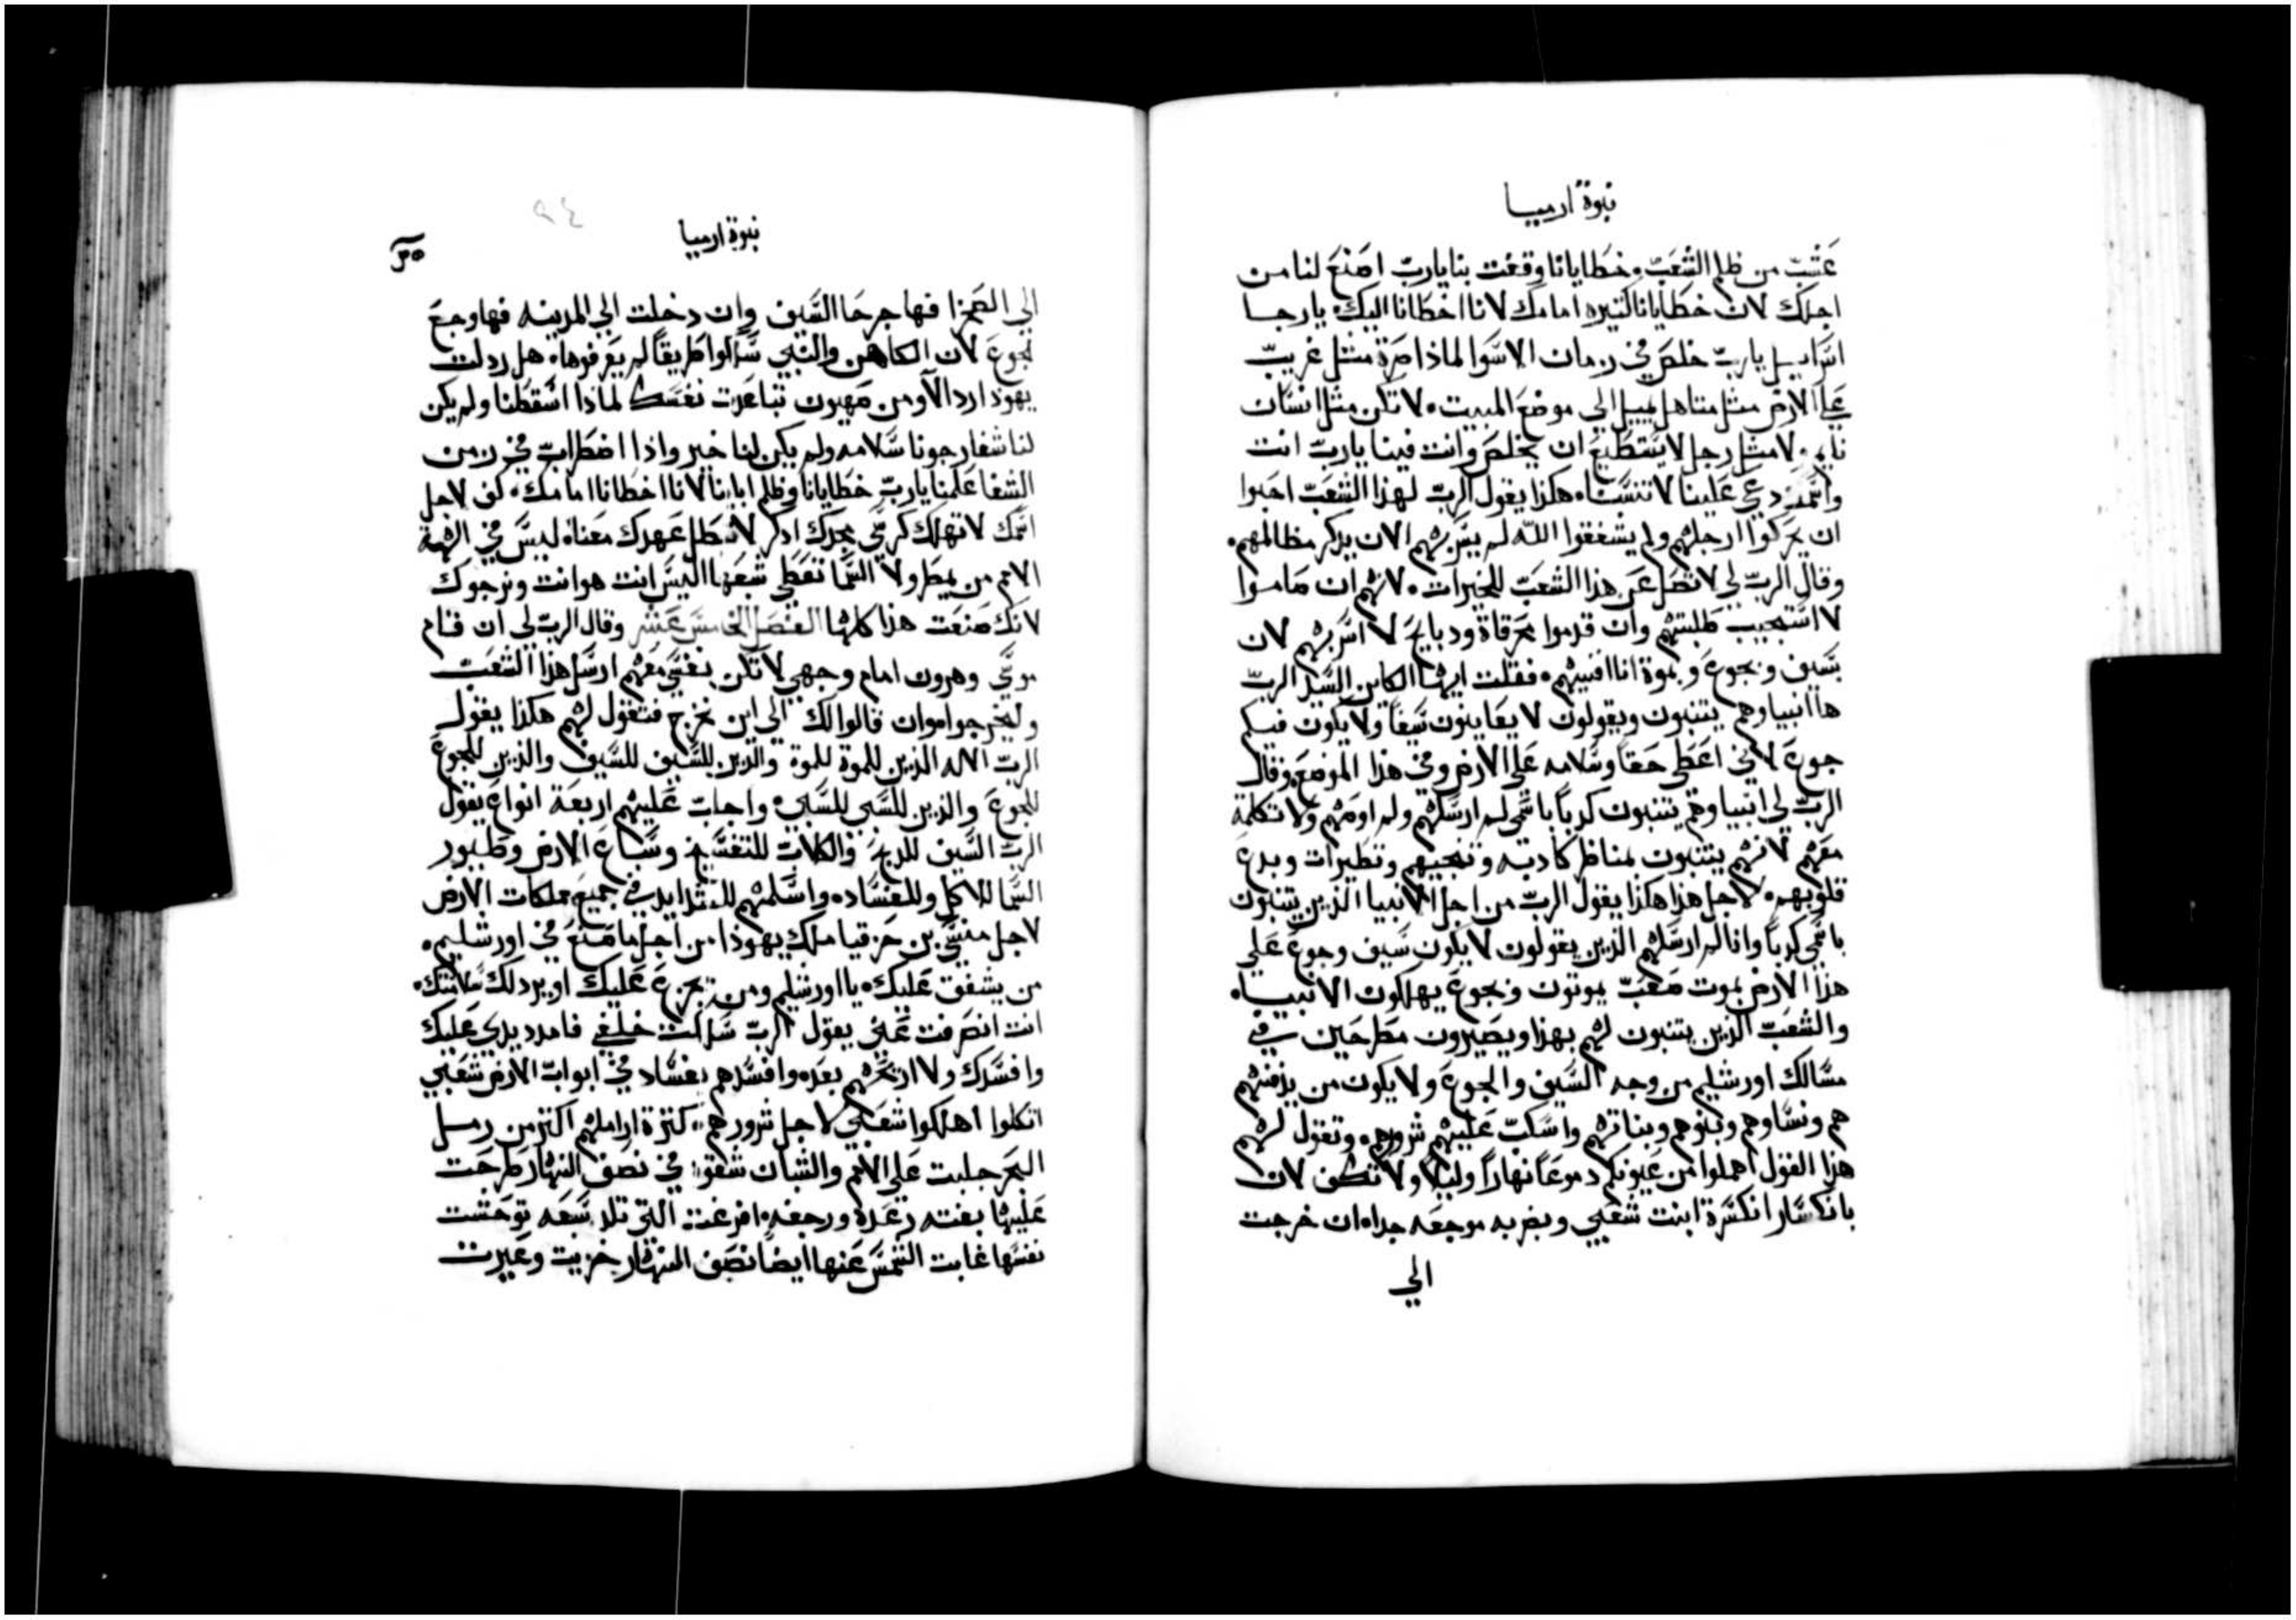 نبوة ارميا
عشب من ظلم الشعب وخطايانا وقفت بنا يارب اصنع لنا من
اجلك لان خطايانا كتيره امامك لاننا اخطانا اليك يا رجا
اسراييل يارب خلص في زمان الاسوا لماذا صرة متل غريب
علي الارض متل متاهل يميل الي موضع المبيت لا تكن متل انسان
نايم لا متل رجل لا يستطيع ان يخلص وانت فينا يارب انت
واسمك دعي علينا لا تنسانا هكذا يقول الرب لهذا الشعب احبوا
ان يحركوا ارجلهم ولم يشفقوا الله لم يسر بهم الان يدكر مظالمهم
وقال الرب لي لا تصل عن هذا الشعب للخيرات لانهم ان صاموا
لا استجيب طلبتهم وان قدموا محرقاة ودبايح لا اسر بهم لان
بسيف وبجوع وبموة انا افنيهم فقلت ايها الكاين السيد الرب
ها انبياوهم يتنبون ويقولون لا يعاينون سيفا ولا يكون فيكم
جوع لاني اعطي حقا وسلامه علي الارض وفي هذا الموضع وقال
الرب لي انبياوهم يتنبون كدبا باسمي لم ارسلهم ولم اوصهم ولا تكلمة
معهم لانهم يتنبون بمناظر كادبه وتنجيهم وتطيرات وبدع
قلوبهم لاجل هذا هكذا يقول الرب من اجل الانبيا الذين يتنبون
باسمي كدبا وانا لم ارسلهم الذين يقولون لا يكون سيف وجوع علي
هذا الارض بموت صعب يموتون وبجوع يهلكون الانبيا
والشعب الذين يتنبون لهم بهذا ويصيرون مطرحين في
مسالك اورشليم من وجه السيف والجوع ولا يكون من يدفنهم
هم ونساوهم وبنوهم وبناتهم واسكب عليهم شرورهم وتقول لهم
هذا القول اهملوا من عيونكم دموعا نهارا وليلا ولا تكف لان
بانكسار انكسرة ابنت شعبي وبضربه موجعه جدا ان خرجت
الي
نبوة ارميا
الي الصحرا فها جرحا السيف وان دخلت الي المدينه فها وجع
لجوع لان الكاهن والنبي سلكوا طريقا لم يعرفوها هل ردلت
يهودا ردا الا ومن صهيون تباعدت نفسك لمادا اسقطنا ولم يكن
لنا شفا رجونا سلامه ولم يكن لنا خير واذا اضطراب في زمن
الشفا علمنا يارب خطايانا وظلم اباينا لاننا اخطانا امامك كف لاجل
اسمك لا تهلك كرسي مجدك ادكر لا تبطل عهدك معنا ليس في الهة
الامم من يمطر ولا السما تعطي شبعها اليس انت هو انت ونرجوك
لانك صنعت هذا كلها الفصل الخامس عشر وقال الرب لي ان قام
موسي وهرون امام وجهي لا تكن نفسي معهم ارسل هذا الشعب
وليخرجوا وان قالوا لك الي اين نخرج فتقول لهم هكذا يقول
الرب الاله الذين للموة للموة والذين للسيف للسيف والذين للجوع
للجوع والذين للسبي للسبي واجاب عليهم اربعة انواع يقول
الرب السيف للدبح والكلاب للتفسيخ وسباع الارض وطيور
السما للاكل وللفساده واسلمهم للشدايد في جميع مملكات الارض
لاجل منسي بن حزقيا ملك يهوذا من اجل ما صنع في اورشليم
من يشفق عليك يا اورشليم ومن يجزع عليك او يرد لك سلامتك
انت انصرفت عني يقول الرب سلكت خلفي فامدد يدي عليك
وافسدك ولا ارحمهم بعده وافسدهم بفساد في ابواب الارض شعبي
اتكلوا اهلكوا شعبي لاجل شرورهم كترة اراملهم اكتر من رمل
البحر جلبت علي الامم والشبان شقوه في نصف النهار طرحت
عليها بغته رعده ورجفه افزعت التي تلد سبعه توحشت
نفسها غابت الشمس عنها ايضا نصف النهار خزيت وعيرت